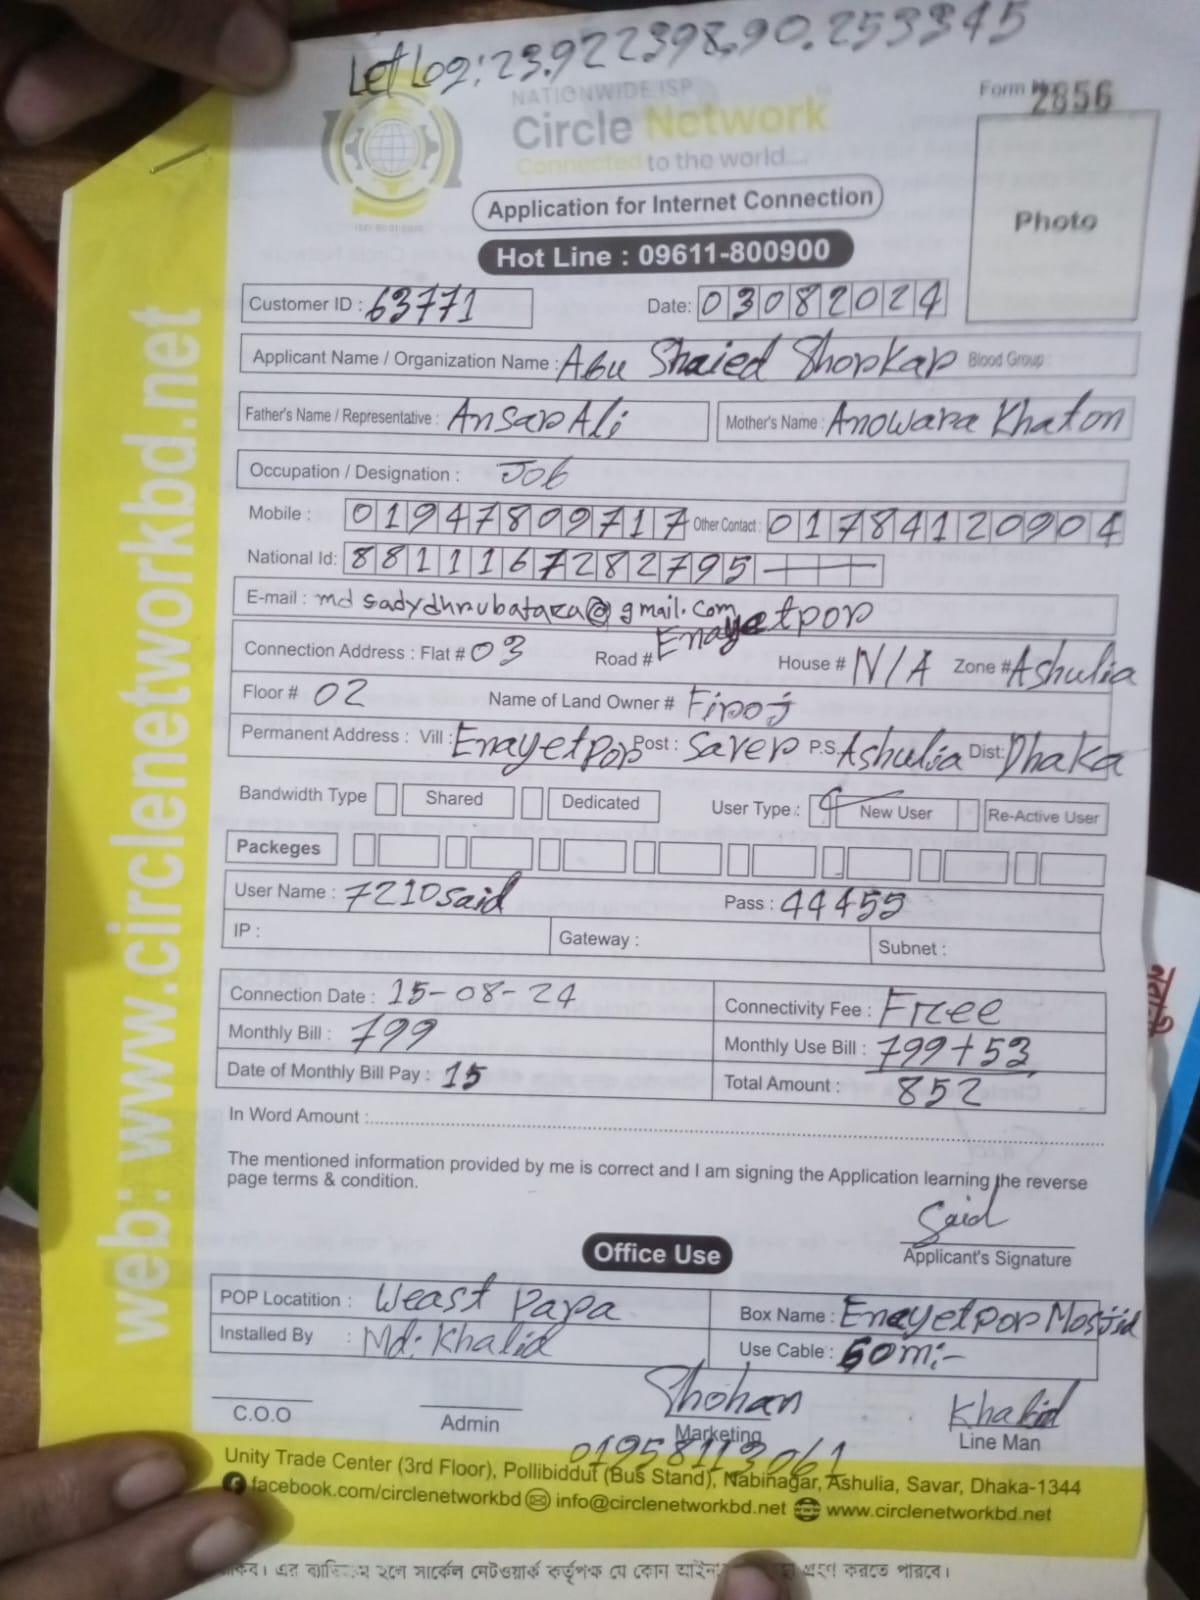 Let Log: 23.922398,90.253345
NATIONWIDE ISP
Form No 2856
Circle Network
Connected to the world....
Photo
Application for Internet Connection
Hot Line : 09611-800900
Customer ID : 63771 Date: 03082024
Applicant Name / Organization Name : Abu Shaied Shorkar Blood Group :
Father's Name / Representative : Ansar Ali Mother's Name : Anowara Khaton
Occupation / Designation : Job
Mobile : 01947809717 Other Contact : 01784120904
National Id: 8811167282795
E-mail : mdsadydhrubataza@gmail.com
Connection Address : Flat # 03 Road # Enayetpor House # N/A Zone # Ashulia
Floor # 02 Name of Land Owner # Firoj
Permanent Address : Vill : Enayetpor Post : Saver P.S. Ashulia Dist: Dhaka
Bandwidth Type Shared Dedicated User Type : New User Re-Active User
Packeges
User Name : 7210said Pass : 44455
IP : Gateway : Subnet :
Connection Date : 15-08-24 Connectivity Fee : Free
Monthly Bill : 799 Monthly Use Bill : 799+53
Date of Monthly Bill Pay : 15 Total Amount : 852
In Word Amount :
The mentioned information provided by me is correct and I am signing the Application learning the reverse
page terms & condition.
Said
Applicant's Signature
Office Use
POP Locatition : Weast Papa Box Name : Enayetpor Mosjid
Installed By : Md: Khalid Use Cable : 60m:-
Shohan Khalid
C.O.O Admin Marketing Line Man
01958113061
Unity Trade Center (3rd Floor), Pollibiddut (Bus Stand), Nabinagar, Ashulia, Savar, Dhaka-1344
facebook.com/circlenetworkbd info@circlenetworkbd.net www.circlenetworkbd.net
web: www.circlenetworkbd.net
হলে সার্কেল নেটওয়ার্ক কর্তৃপক্ষ যে কোন গ্রহণ করতে পারবে।